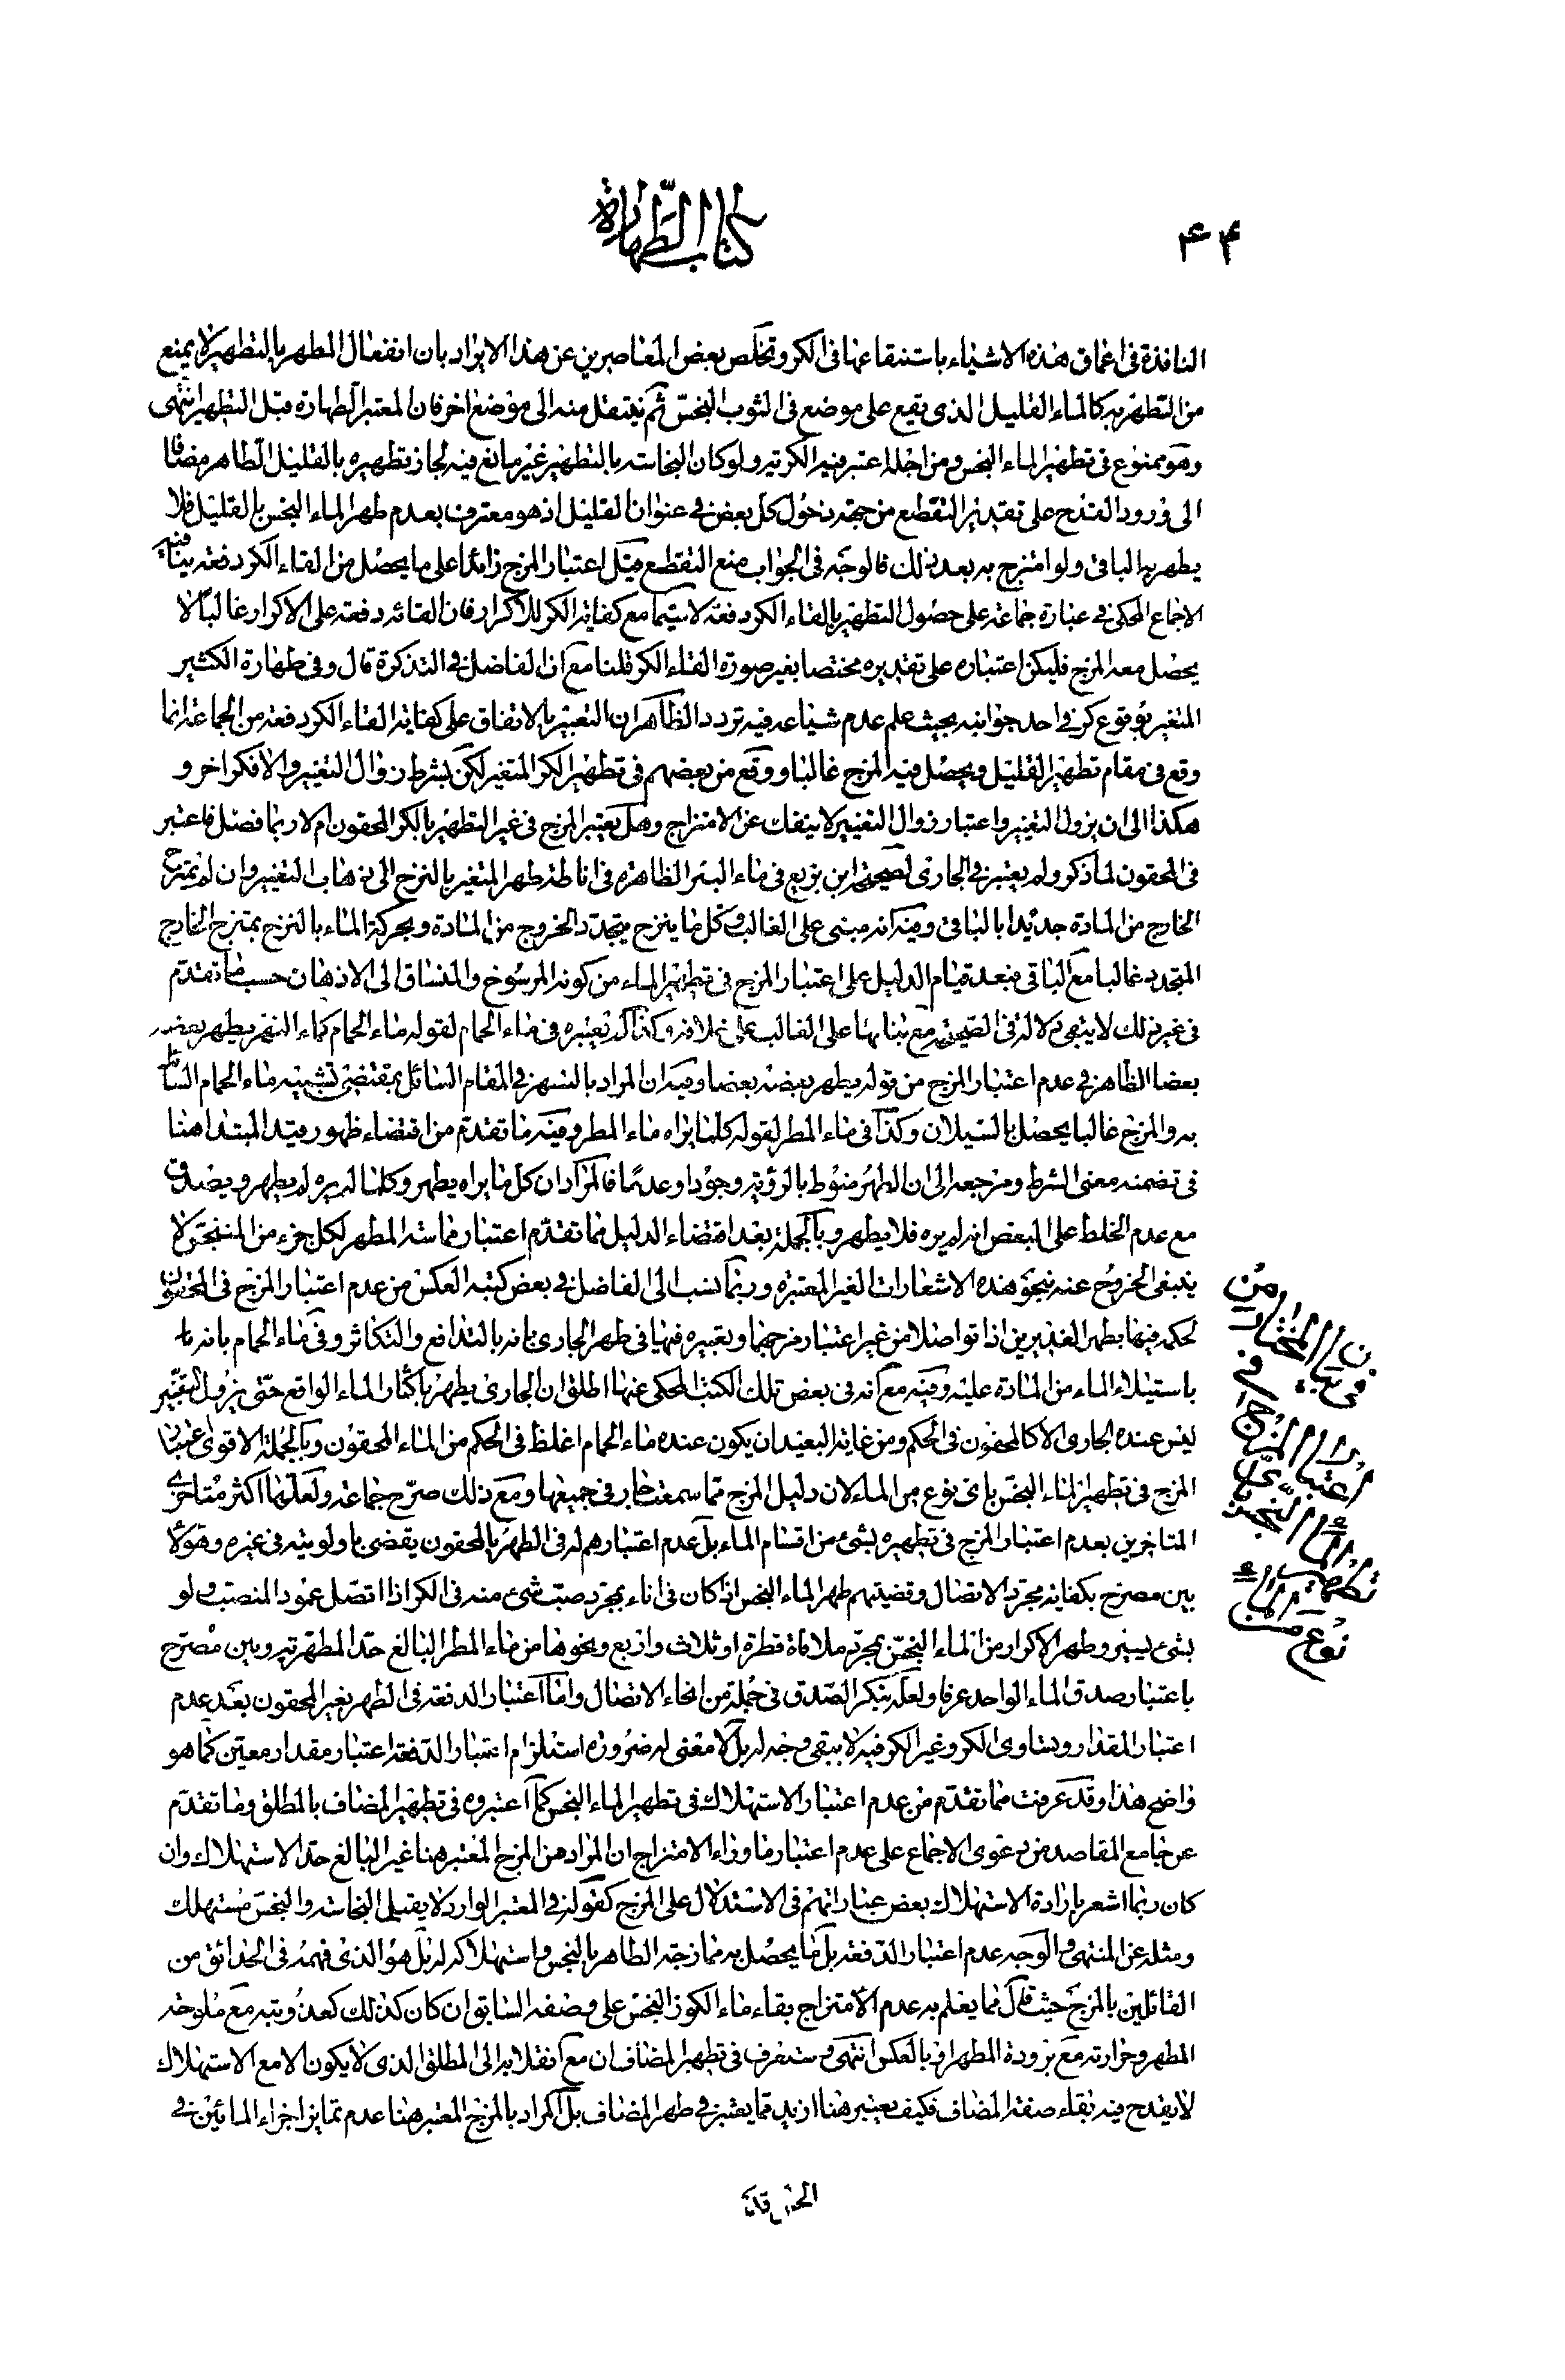 ۴۴
كتاب الطّهارة
النافذة فى اعماق هذه الاشياء باستنقاعها فى الكر وتخلّص بعض المعاصرين عن هذا الايراد بان انفعال المطهر بالتطهير لا يمنع
من التطهّر به كالماء القليل الذى يقع على موضع فى الثوب النجس ثم ينتقل منه الى موضع اخر فان المعتبر الطهارة قبل التطهير انتهى
وهو ممنوع فى تطهير الماء النجس ومن اجله اعتبر فيه الكرية ولو كان النجاسة بالتطهير غير مانع فيه لجاز تطهيره بالقليل الطاهر مضافا
الى ورود القدح على تقدير التقطع من جهة دخول كل بعض فى عنوان القليل اذ هو معترف بعدم طهر الماء النجس بالقليل فلا
يطهر به الباقى ولو امتزج به بعد ذلك فالوجه فى الجواب منع التقطع قيل اعتبار المزج زائدا على ما يحصل من القاء الكر دفعة ينافيه
الاجماع المحكى فى عبارة جماعة على حصول التطهير بالقاء الكر دفعة لا سيما مع كفاية الكر للاكرار فان القائه دفعة على الاكرار غالبا لا
يحصل معه المزج فليكن اعتباره على تقديره مختصا بغير صورة القاء الكر قلنا مع ان الفاضل فى التذكرة قال وفى طهارة الكثير
المتغير بوقوع كر فى احد جوانبه بحيث علم عدم شياعه فيه تردد الظاهر ان التعبير بالاتفاق على كفاية القاء الكر دفعة من الجماعة انما
وقع فى مقام تطهير القليل ويحصل فيه المزج غالبا ووقع من بعضهم فى تطهير الكر المتغير لكن بشرط زوال التغيير والا فكر اخر و
هكذا الى ان يزول التغيير واعتبار زوال التغيير لا ينفك عن الامتزاج وهل يعتبر المزج فى غير التطهير بالكر المحقون ام لا ربما فصل فاعتبر
فى المحقون لما ذكر ولم يعتبر فى الجارى لصحيحة ابن بزيع فى ماء البئر الظاهرة فى اناطة طهر المتغير بالنزح الى ذهاب التغيير وان لم يمتزج
الخارج من المادة جديدا بالباقى وفيه انه مبنى على الغالب فكل ما ينزح يتجدد الخروج من المادة وبحركة الماء بالنزح يمتزج الخارج
المتجدد غالبا مع الباقى فبعد قيام الدليل على اعتبار المزج فى تطهير الماء من كونه المرسوخ والمنساق الى الاذهان حسب ما تقدم
فى غير ذلك لا يبقى دلالة فى الصحيحة مع بنائها على الغالب على خلافه وكذا لم يعتبره فى ماء الحمام لقوله ماء الحمام كماء النهر يطهر بعضه
بعضا الظاهر فى عدم اعتبار المزج من قوله يطهر بعضه بعضا وفيه ان المراد بالنهر فى المقام السائل بمقتضى تشبيه ماء الحمام السائل
به والمزج غالبا يحصل بالسيلان وكذا فى ماء المطر لقوله كلما يراه ماء المطر وفيه ما تقدم من اقتضاء ظهور قيد المبتدا هنا
فى تضمنه معنى الشرط ومرجعه الى ان الطهر منوط بالرؤية وجودا وعدما فالمراد ان كل ما يراه يطهر وكلما لم يره لم يطهر ويصدق
مع عدم الخلط على البعض انه لم يره فلا يطهر وبالجملة بعد اقتضاء الدليل مما تقدم اعتبار مماسة المطهر لكل جزء من المتنجس لا
ينبغى الخروج عنه بنحو هذه الاشعارات الغير المعتبرة وربما نسب الى الفاضل فى بعض كتبه العكس من عدم اعتبار المزج فى المحقون
لحكمه فيها بطهر الغديرين اذا تواصلا من غير اعتبار مزجهما وتعبيره فيها فى طهر الجارى بانه بالتدافع والتكاثر وفى ماء الحمام بانه
باستيلاء الماء من المادة عليه وفيه مع انه فى بعض تلك الكتب المحكى عنها اطلق ان الجارى يطهر باكثار الماء الواقع حتى يزول التغير
ليس عنده الجارى الا كالمحقون فى الحكم ومن غاية البعيد ان يكون عنده ماء الحمام اغلظ فى الحكم من الماء المحقون وبالجملة الاقوى اعتبار
المزج فى تطهير الماء النجس باى نوع من الماء لان دليل المزج مما سمعت جار فى جميعها ومع ذلك صرّح جماعة ولعلهم اكثر متاخرى
المتاخرين بعدم اعتبار المزج فى تطهيره بشئ من اقسام الماء بل عدم اعتبارهم له فى الطهر بالمحقون يقضى باولويته فى غيره وهؤلاء
بين مصرح بكفاية مجرد الاتصال وقضيتهم طهر الماء النجس اذا كان فى اناء بمجرد صبّ شئ منه فى الكر اذا اتصل عمود المنصب ولو
بشئ يسير وطهر الاكرار من الماء النجس بمجرد ملاقاة قطرة او ثلاث واربع ونحوها من ماء المطر البالغ حد المطهرية وبين مصرّح
باعتبار صدق الماء الواحد عرفا ولعله ينكر الصدق فى جملة من انحاء الاتصال واما اعتبار الدفعة فى الطهر بغير المحقون بعد عدم
اعتبار المقدار وتساوى الكر وغير الكر فيه لا يبقى وجه له بل لا معنى له ضرورة استلزام اعتبار الدفعة اعتبار مقدار معين كما هو
واضح هذا وقد عرفت مما تقدم من عدم اعتبار الاستهلاك فى تطهير الماء النجس كما اعتبروه فى تطهير المضاف بالمطلق وما تقدم
عن جامع المقاصد من دعوى الاجماع على عدم اعتبار ما وراء الامتزاج ان المراد من المزج المعتبر هنا غير البالغ حد الاستهلاك وان
كان ربما اشعر بارادة الاستهلاك بعض عباراتهم فى الاستدلال على المزج كقوله فى المعتبر الوارد لا يقبل النجاسة والنجس مستهلك
ومثله عن المنتهى والوجه عدم اعتبار الدفعة بل ما يحصل به ممازجة الطاهر بالنجس واستهلاكه له بل هو الذى فهمه فى الحدائق من
القائلين بالمزج حيث قال مما يعلم به عدم الامتزاج بقاء ماء الكوز النجس على وصفه السابق ان كان كذلك كعذوبته مع ملوحة
المطهر وحرارته مع برودة المطهر او بالعكس انتهى وستعرف فى تطهير المضاف ان مع انقلابه الى المطلق الذى لا يكون الا مع الاستهلاك
لا يقدح فيه بقاء صفة المضاف فكيف يعتبر هنا ازيد مما يعتبر فى طهر المضاف بل المراد بالمزج المعتبر هنا عدم تمايز اجزاء المائين فى
فى بيان المختار من
اعتبار المزج فى
تطهير الماء النجس باى
نوع من الماء